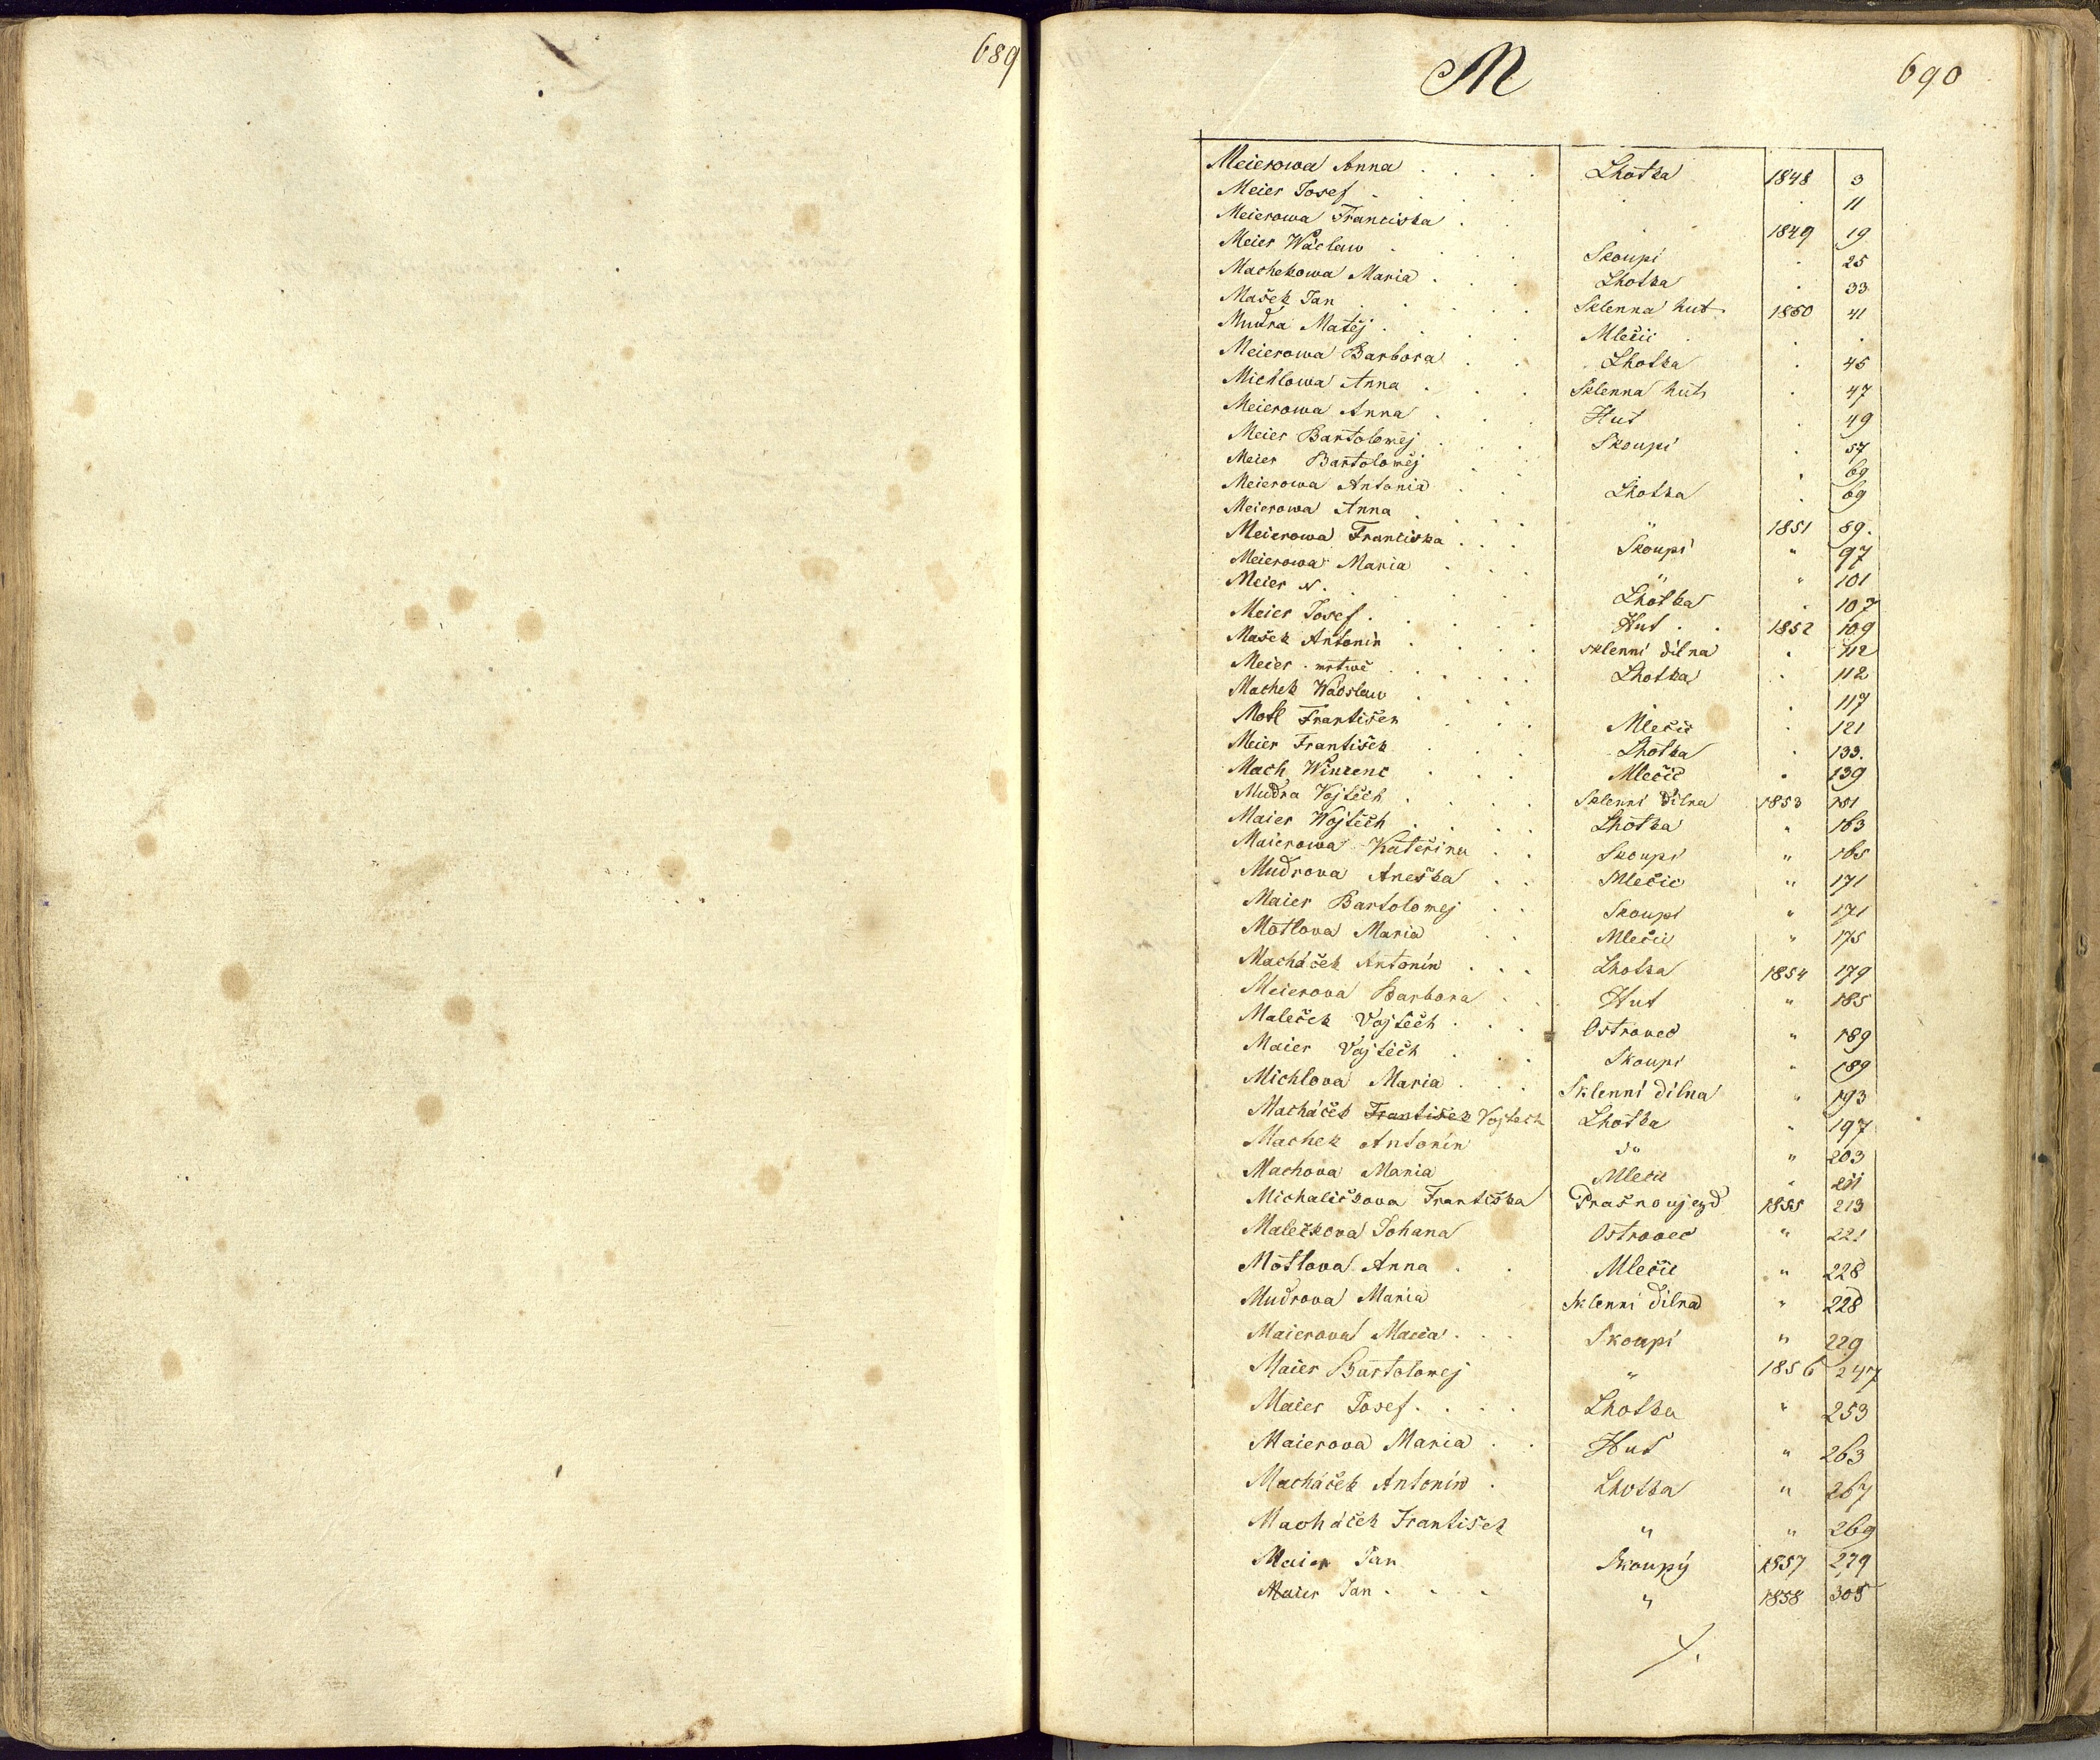 689
M
690
Meierowa Anna . . . . Lhotka 1848 3
Meier Josef . . . . . . 11
Meierowa Franciska . . . 1849 19
Meier Wáclaw . . . . Skoupí . 25
Machekowa Maria . . . Lhotka . 33
Mašek Jan . . . . . Sklenna hut 1850 41
Mudra Matěj . . . . Mlečic . . .
Meierowa Barbora . . Lhotka . 45
Michlowa Anna . . . Sklenna hut . 47
Meierowa Anna . . . Hut . 49
Meier Bartoloměj . . . Skoupí . 57
Meier Bartoloměj . . . . 69
Meierowa Antonia . . Lhotka . 69
Meierowa Anna . . . . " 1851 89.
Meierowa Franciska . . . Skoupí " 97
Meierowa Maria . . . " " 101
Meier N. . . . . Lhotka . 107
Meier Josef . . . . . Hut . . 1852 109
Mašek Antonín . . . . sklenní dílna . 112
Meier . mrtwé . . . . . Lhotka . 112
Machek Wácslaw . . . . . . 117
Motl František . . . Mlečic . 121
Meier František . . . Lhotka . 133.
Mach Winzenc . . . Mlečic . 139
Mudra Vojtěch . . . . Sklenní Dílna 1853 151
Maier Wojtěch . . . . Lhotka " 163
Maierowa Kateřina . . Skoupí " 165
Mudrova Aneška . . Mlečic " 171
Maier Bartolomej . . Skoupí " 171
Motlova Maria . . Mlečic " 175
Macháček Antonín . . . Lhotka 1854 179
Meierova Barbora . . Hut " 185
Maleček Vojtěch . . . Ostrovec " 189
Maier Vojtěch . . . Skoupí " 189
Michlova Maria . . . Sklenní dílna " 193
Macháček František Vojtěch Lhotka " 197
Machek Antonín do " 203
Machova Maria Mlečic " 211
Michaličkova Františka Prašnoujezd 1855 213
Malečkova Johana Ostrovec " 221
Motlova Anna . . Mlečic " 228
Mudrova Maria Sklenní dílna " 228
Maierova Maria . . . Skoupí " 229
Maier Bartolomej " 1856 247
Maier Josef . . . . Lhotka " 253
Maierova Maria . . Hut " 263
Macháček Antonín . Lhotka " 267
Macháček František " " 269
Maier Jan Skoupý 1857 279
Maier Jan . . . . " 1858 305